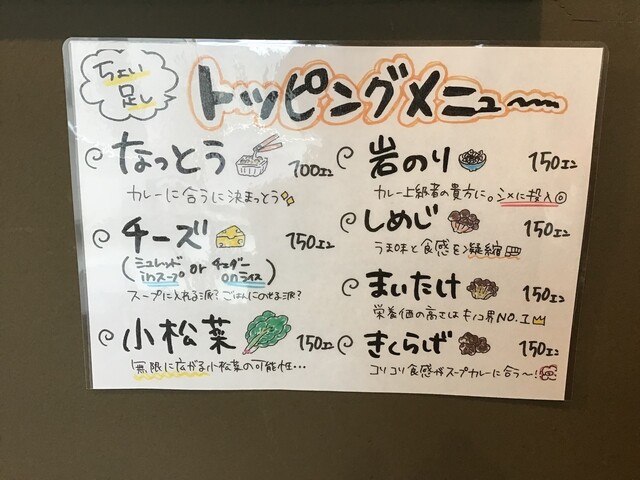 ちょい
足し
トッピングメニュー
なっとう 100エン
カレーに合うに決まっとう
チーズ 150エン
(シュレッド inスープ or チェダー onライス)
スープに入れる派？ごはんにのせる派？
小松菜 150エン
無限に広がる小松菜の可能性…
岩のり 150エン
カレー上級者の貴方に。シメに投入◎
しめじ 150エン
うま味と食感を凝縮
まいたけ 150エン
栄養価の高さはキノコ界NO.1
きくらげ 150エン
コリコリ食感がスープカレーに合う〜!